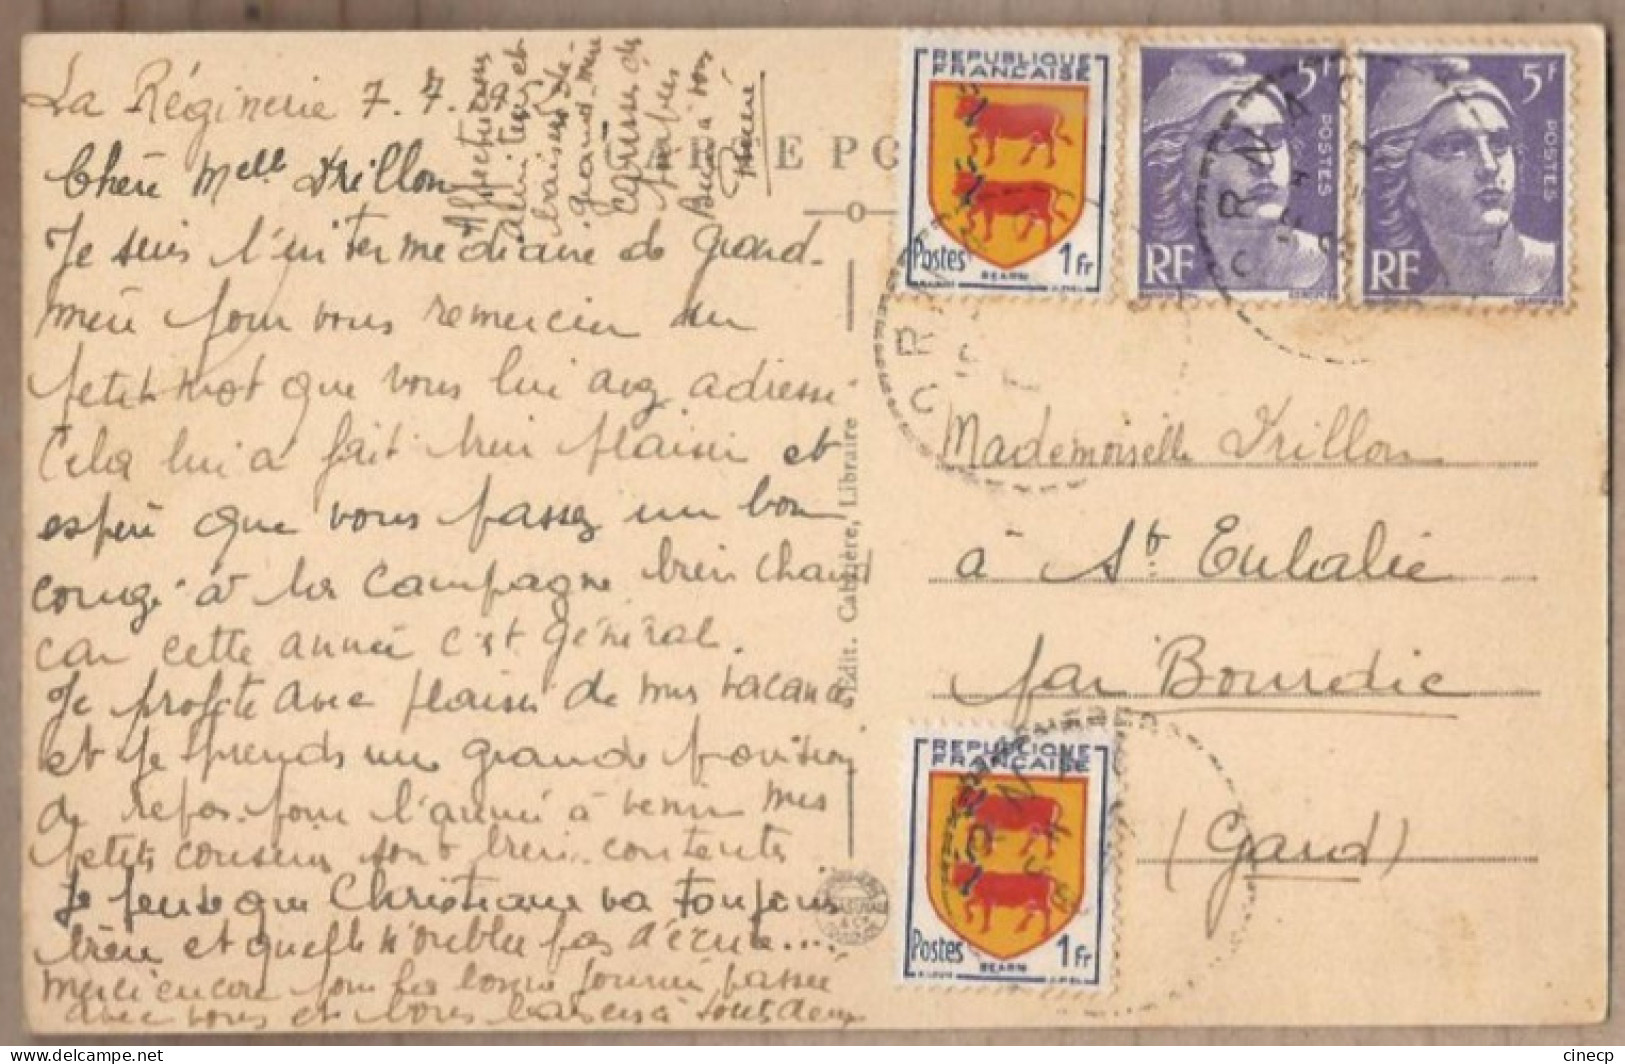 La Réginerie 7.7.1952
Chère Melle Trillon
Je suis l'intermédiaire de grand-
mère pour vous remercier du
petit mot que vous lui avez adressé.
Cela lui a fait bien plaisir et
espère que vous passez un bon
congé à la campagne bien chaud
car cette année c'est général.
Je profite avec plaisir de mes vacances
et je prends une grande provision
de repos pour l'année à venir mes
petits cousins sont bien contents
Je pense que Christiane va toujours
bien et qu'elle n'oublie pas d'écrire....
Merci encore pour la bonne journée passée
avec vous et bons baisers à tous deux
Affectueuses
amitiés et
baisers de
grand-mère
Bien à vous
CARTE PO
Edit. Cabrière, Libraire
REPUBLIQUE
FRANÇAISE
Postes 1 Fr
BEARN
5F
POSTES
RF
5F
POSTES
RF
Mademoiselle Trillon
à St. Eulalie
par Bourdic
(Gard)
REPUBLIQUE
FRANÇAISE
Postes 1 Fr
BEARN
https://www.delcampe.net
cinecp